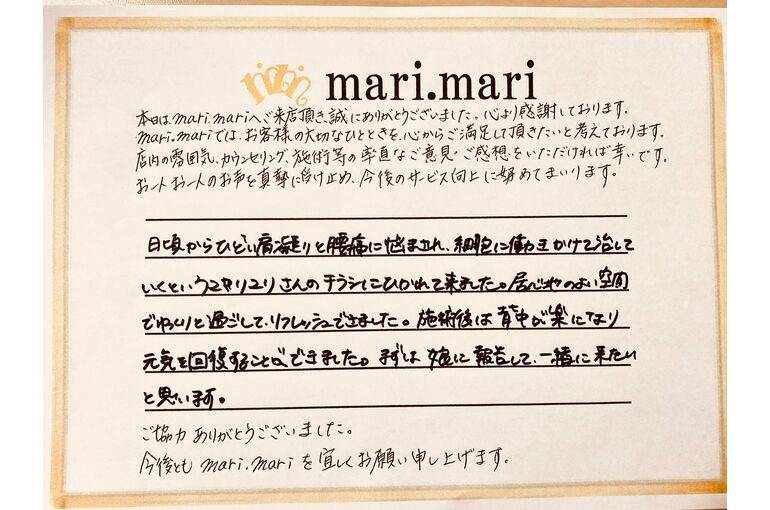 mari.mari
本日はmari.mariへご来店頂き、誠にありがとうございました。心より感謝しております。
mari.mariでは、お客様の大切なひとときを、心からご満足して頂きたいと考えております。
店内の雰囲気、カウンセリング、施術等の率直なご意見・ご感想をいただければ幸いです。
お一人お一人のお声を真摯に受け止め、今後のサービス向上に努めてまいります。
日頃からひどい肩凝りと腰痛に悩まされ、細胞に働きかけて治して
いくというユサリユリさんのチラシにひかれて来ました。居心地のよい空間
でゆっくりと過ごして、リフレッシュできました。施術後は背中が楽になり
元気を回復することができました。まずは娘に報告して、一緒に来たい
と思います。
ご協力ありがとうございました。
今後ともmari.mariを宜しくお願い申し上げます。